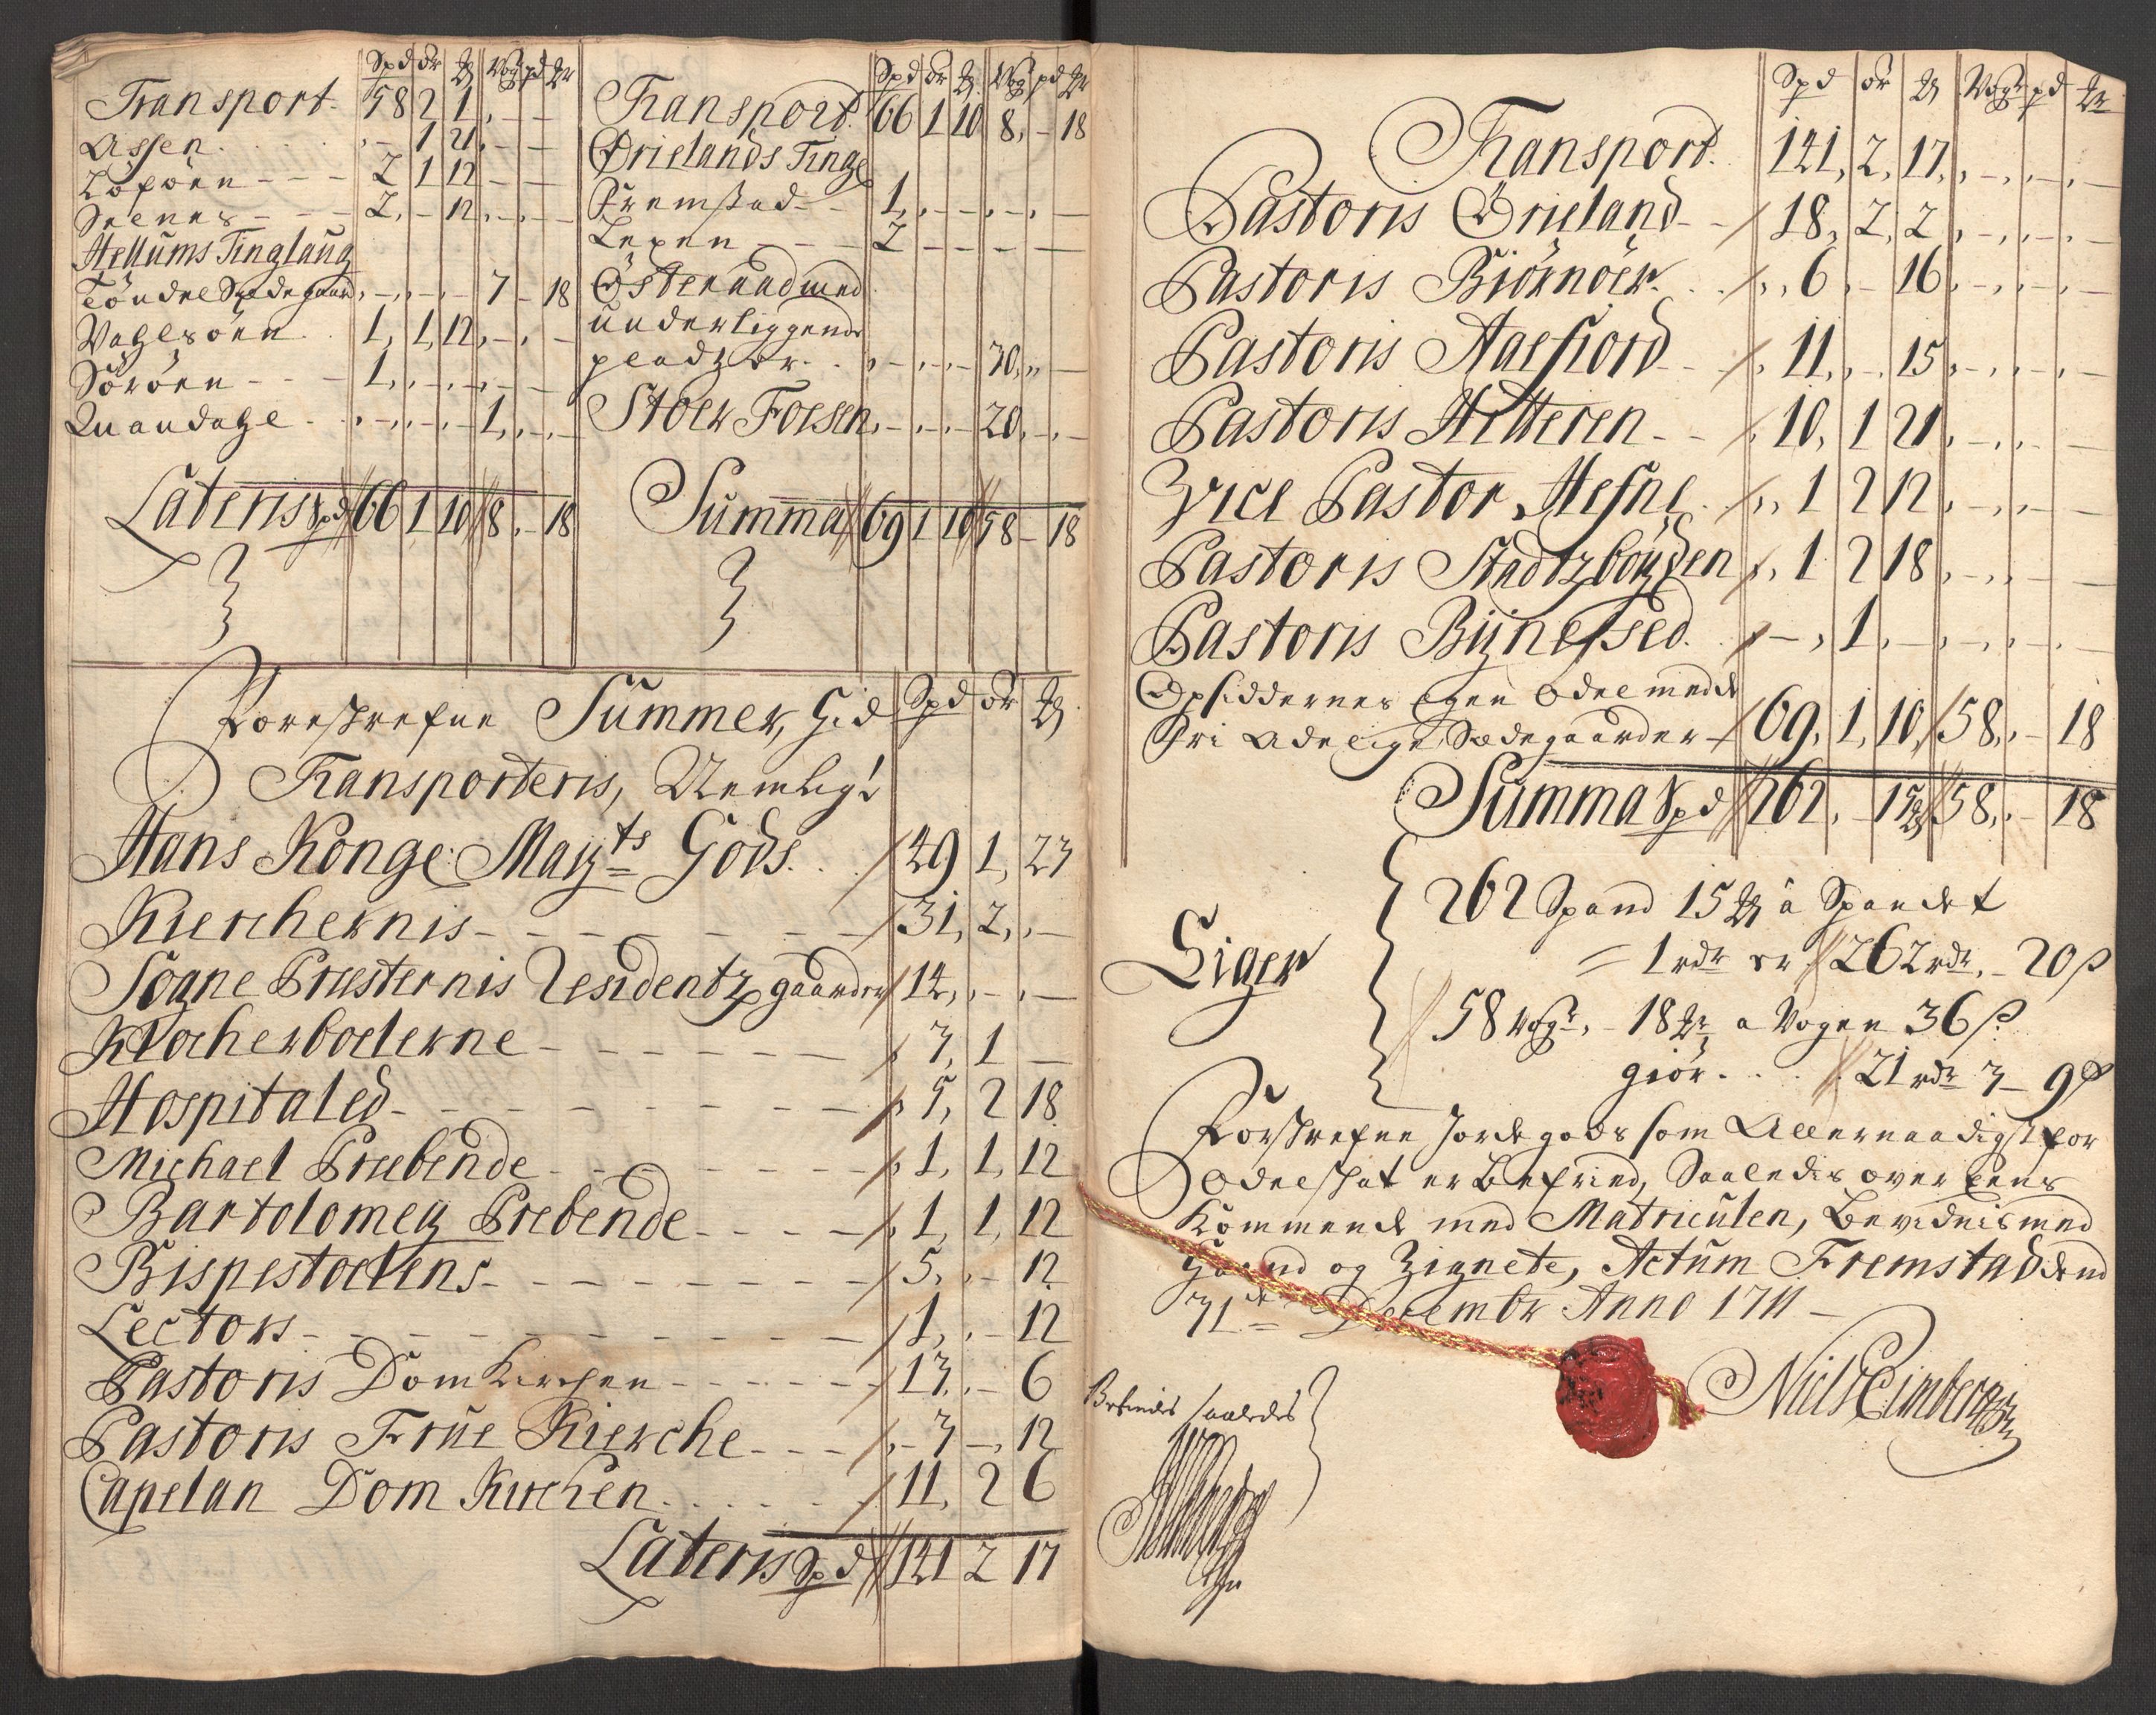 Spd ör ℔ Wog pd ℔r
Transport. 58 2 1 , - -
Assen . . . . . - 1 21 , - -
Löföen - - - 2 1 12 - -
Selnes - - - 2 , - 12 , - , - , -
Hellums Tinglaug
Töndel Sædegaard , - , - , - 7 - 18
Vaglsöen . . 1 , 1 , 12 , - , -
Söröen - - - 1 , , - , - , - , -
Quandahl . . , - , - , - 1 , , - , -
Lateris Spd 66 1 10 8 , - 18
Spd ör ℔ Wog pd ℔r
Transport. 66 1 10 8 , - 18
Ørlands Tinge
Fremstad - - 1 , - , - , - , -
Lexen - - - 2 - - - - -
Østeraad med
underliggende
pladzer . . , - , - , - 30 , , -
Stoer Fosen , - , - , - 20 , - , -
Summa 69 1 10 58 - 18
Forestrefne Summer, hid Spd ör ℔
Transporteris, Nemligt
Hans Konge: Mayts Gods . . . 49 1 , 23
Kierchernis - - - - - - 31 , 2 , , -
Sogne Præsternis Residentz gaarder 14 , , - , -
Klocherbolerne - - - - - - 3 , 1 -
Hospitaled - - - - - - - 5 , 2 18
Michael Præbende - - - - - 1 , 1 , 12
Bartolomey Prebende - - - - 1 , 1 , 12
Bispestoelens - - - - - - 5 , , - 12
Lectors - - - - - - - - 1 , , - 12
Pastoris Dom Kirchen - - - - - 13 , , - 6
Pastoris Frue Kierche - - - , - 3 - , 12
Capelan Dom Kirchen . . . . . 11 , 2 6
Lateris Spd 141 2 17
Spd ör ℔ Wogr pd ℔r
Transport. 141 , 2 , 17 , , - , - , -
Pastoris Ørieland - - 18 , 2 , 2 , - , - , -
Pastoris Biörnöer . . , 6 , - 16 , - , - , -
Pastoris Aaefiord - - , 11 , , . 15 , - , - , -
Pastoris Hitteren - - , 10 , 1 21 , - , - , -
Vice Pastor Hefne . , 1 2 12 , - , - , -
Pastoris Stadtzbøyden , 1 2 18 , - , - , -
Pastoris Bijnessed . . - , 1 , - , - , - , -
Opsiddernes Egen Odel med de
fri Adelige Sædegaarder - 69 , 1 , 10 , 58 , , - 18
Summa Spd 262 , - 15 ℔ 58 , , - 18
262 Spand 15 ℔ à Spandet
= 1 rdr er 262 rdr , - 20 ß
Siger
58 Wogr , - 18 ℔r a Wogen 36 ß
giör . . . 21 rdr 3 - 9 ß
Forskrefne Jordegods som Allernaadigst for
Odelskat er befried, Saaledis overeens
Kommende med Matriculen, Bevidnis med
Haand og Zignete, Actum Fremstad dend
31de Decembr Anno 1711 -
Befindes saaledes